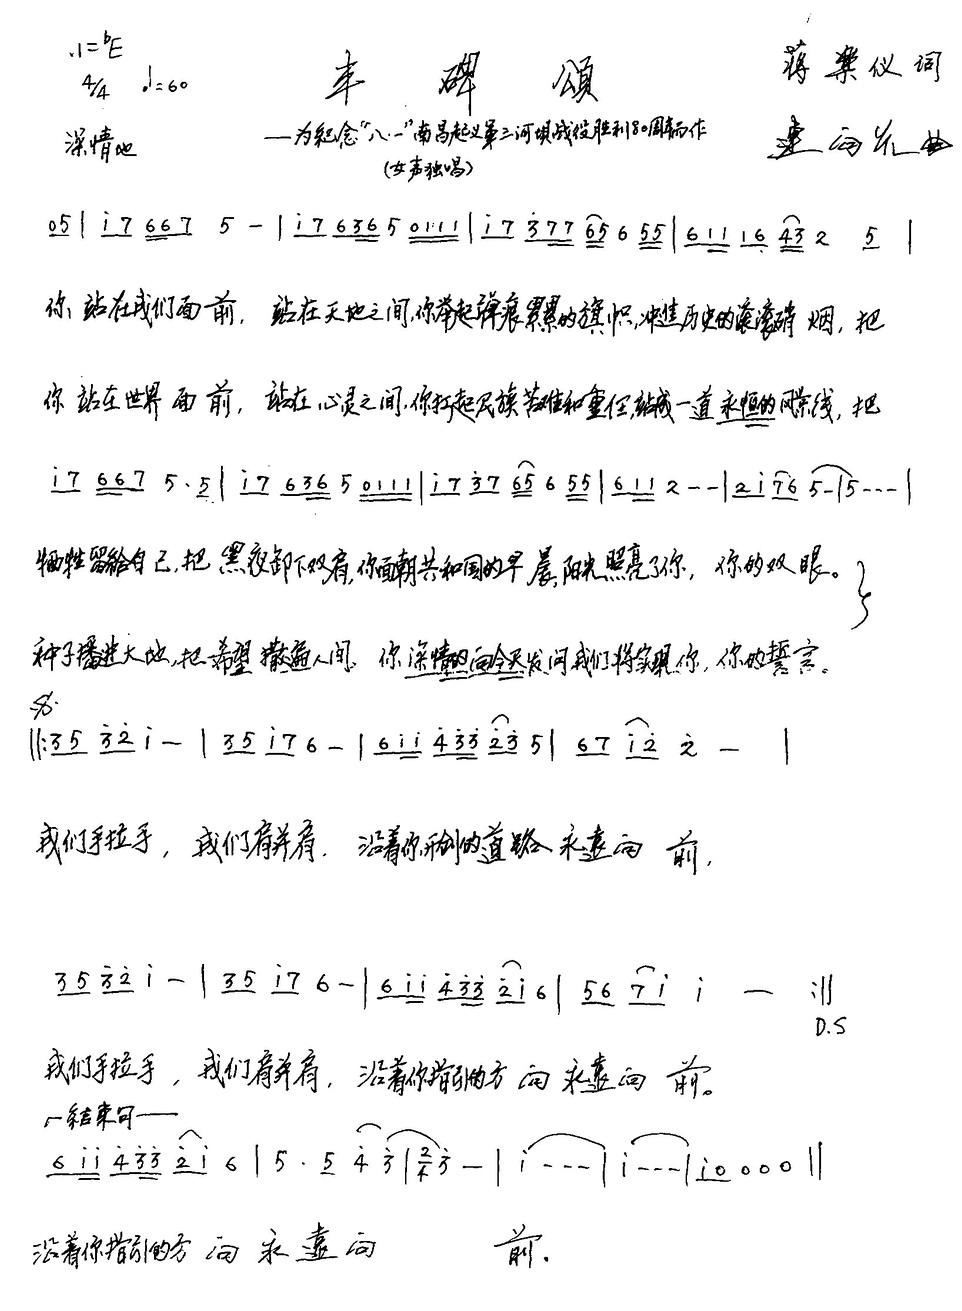 1=ᵇE
4/4 ♩=60
丰 碑 颂
蒋燊仪 词
深情地
—为纪念“八·一”南昌起义第三河坝战役胜利80周年而作
曲
(女声独唱)
05| i7 667 5 - | i7 636 5 0111 | i7 377 65 6 55 | 611 16 43 2 5 |
你站在我们面前, 站在天地之间,你举起弹痕累累的旗帜,冲进历史的滚滚硝烟, 把
你站在世界面前, 站在心灵之间,你扛起民族苦难和重任,站成一道永恒的风景线, 把
i7 667 5·5 | i7 636 5 0111 | i7 37 65 6 55 | 611 2 - - | 2i 76 5 - | 5 - - - |
牺牲留给自己,把黑夜卸下双肩,你面朝共和国的早晨,阳光照亮了你, 你的双眼。
种子播进大地,把希望撒遍人间, 你深情的向今天发问我们将实现你, 你的誓言。
‖:35 32 i - | 35 i7 6 - | 6ii 433 23 5 | 67 i2 2 - |
我们手拉手, 我们肩并肩, 沿着你开创的道路永远向前,
35 32 i - | 35 i7 6 - | 6ii 433 2i 6 | 56 7i i - :‖
D.S
我们手拉手, 我们肩并肩, 沿着你指引的方向永远向前。
结束句
6ii 433 2i 6 | 5·5 4 3 | 2/4 3 - | i - - - | i - - - | i0 0 0 0 ‖
沿着你指引的方向永远向 前.